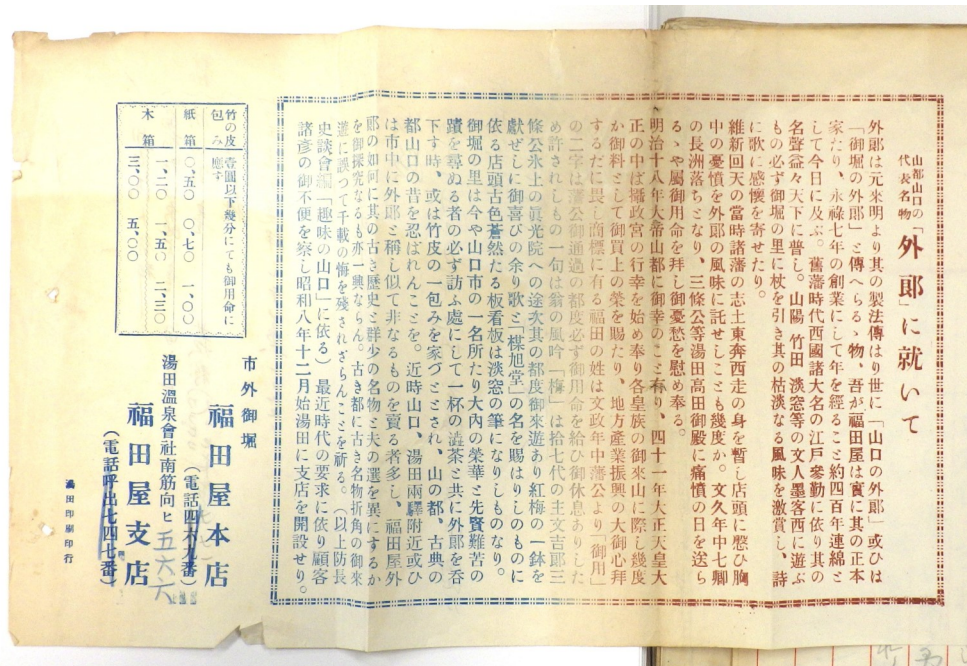 山都山口の
代長名物「外郎」に就いて
外郎は元来明より其の製法傳はり世に「山口の外郎」或ひは
「御堀の外郎」と傳へらるゝ物、吾が福田屋は實に其の正本
家たり、永祿七年の創業にして年を經ること約四百年連綿と
して今日に及ぶ。舊藩時代西國諸大名の江戸參勤に依り其の
名聲益々天下に普し。山陽 竹田 淡窓等の文人墨客西に遊ぶ
もの必ず御堀の里に杖を引き其の枯淡なる風味を激賞し、詩
に歌に感懷を寄せたり。
維新回天の當時諸藩の志士東奔西走の身を暫し店頭に憩ひ胸
中の憂憤を外郎の風味に託せしことも幾度か。文久年中七卿
の長洲落ちとなり、三條公等湯田高田御殿に痛憤の日を送ら
るゝや屬御用命を拜し御憂愁を慰め奉る。
明治十八年大帝山都に御幸のこと有り、四十一年大正天皇大
正の中ば攝政宮の行幸を始め奉り各皇族の御來山に際し幾度
か御料として御買上の榮を賜たり、地方産業振興の大御心拜
するだに畏し商標に有る福田の姓は文政年中藩公より「御用」
の二字は藩公御通過の都度必ず御用命を給ひ御休息ありした
め許されしもの一句は翁の風吟「梅」は拾七代の主文吉郎三
條公氷上の眞光院への途次其の都度御來遊あり紅梅の一鉢を
獻ぜしに御喜びの余り歌と「楳旭堂」の名を賜はりしのものに
依る店頭古色蒼然たる板看板は淡窓の筆になりしものなり。
御堀の里は今や山口市の一名所たり大內の榮華と先賢難苦の
蹟を尋ぬる者の必ず訪ふ處にして一杯の澁茶と共に外郎を呑
下す時、或は竹皮の一包みを家づととされ、山の都、古典の
都山口の昔を忍ばれんことを。近時山口、湯田兩驛附近或ひ
は市中に外郎と稱し似て非なるものを賣る者多し、福田屋外
郎の如何に其の古き歷史と群少の名物と夫の選を異にするか
を御探究なるも亦一興ならん。古き都に古き名物折角の御來
遊に誤つて千載の悔を殘されざらんことを祈る。（以上防長
史談會編「趣味の山口」に依る）最近時代の要求に依り顧客
諸彥の御不便を察し昭和八年十二月始湯田に支店を開設せり。
竹の皮包み 壹圓以下幾分にても御用命に應ず
紙箱 〇、五〇 〇、七〇 一、〇〇
木箱 一、二〇 一、五〇 二、三〇
三、〇〇 五、〇〇
市外御堀
福田屋本店
（電話四六九番）
湯田溫泉會社南筋向ヒ
福田屋支店
（電話呼出七四七番）
五六六
湯田印刷印行